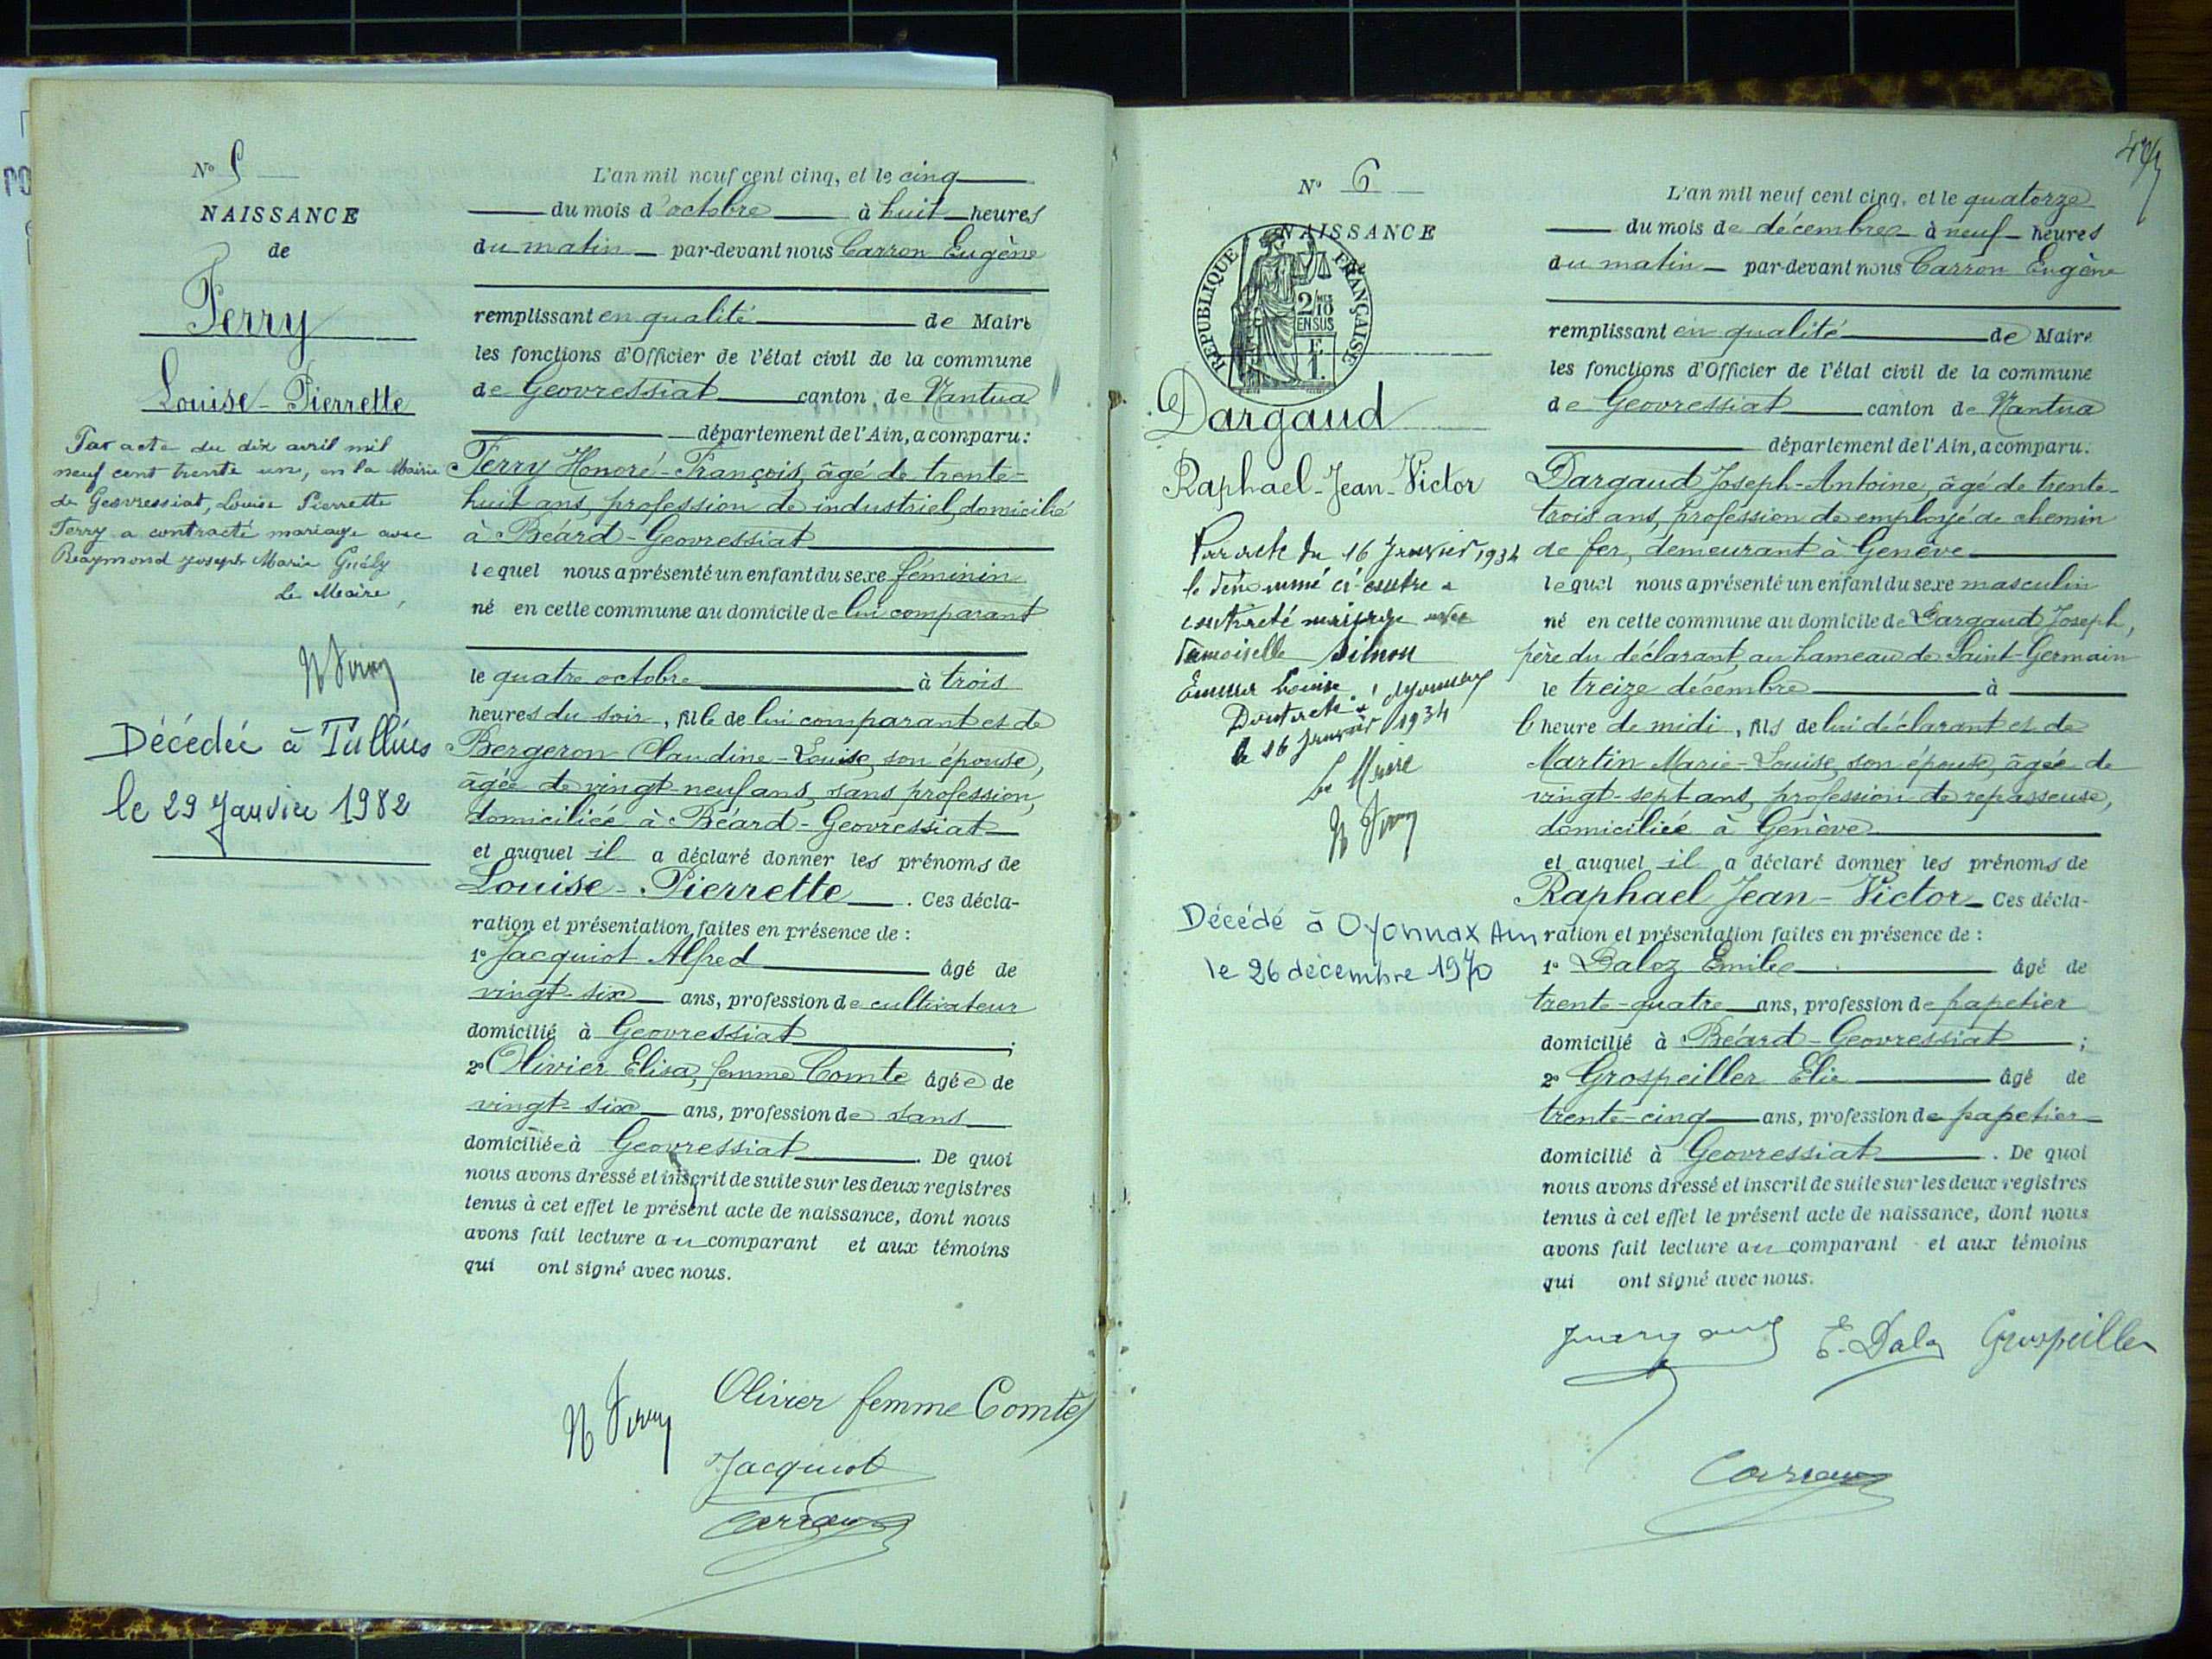 N° 5
NAISSANCE
de
Ferry
Louise-Pierrette
Par acte du dix avril mil
neuf cent trente un, en la Mairie
de Geovressiat, Louise Pierrette
Ferry a contracté mariage avec
Raymond Joseph Marie Guély
Le Maire,
H Ferry
Décédée à Tullins
le 29 Janvier 1982
L'an mil neuf cent cinq, et le cinq
du mois d'octobre à huit heures
du matin par-devant nous Carron Eugène
remplissant en qualité de Maire
les fonctions d'Officier de l'état civil de la commune
de Geovressiat canton de Nantua
département de l'Ain, a comparu:
Ferry Honoré-François, âgé de trente-
huit ans, profession de industriel, domicilié
à Béard-Geovressiat
lequel nous a présenté un enfant du sexe féminin
né en cette commune au domicile de lui comparant
le quatre octobre à trois
heures du soir, fille de lui comparant et de
Bergeron Claudine-Louise, son épouse,
âgée de vingt-neuf ans, sans profession,
domiciliée à Béard-Geovressiat
et auquel il a déclaré donner les prénoms de
Louise-Pierrette. Ces décla-
ration et présentation faites en présence de:
1° Jacquiot Alfred âgé de
vingt-six ans, profession de cultivateur
domicilié à Geovressiat;
2° Olivier Elisa, femme Comte âgée de
vingt-six ans, profession de sans
domiciliée à Geovressiat. De quoi
nous avons dressé et inscrit de suite sur les deux registres
tenus à cet effet le présent acte de naissance, dont nous
avons fait lecture au comparant et aux témoins
qui ont signé avec nous.
H Ferry
Olivier femme Comte
Jacquiot
Carron
N° 6
NAISSANCE
REPUBLIQUE FRANÇAISE
2/10
EN SUS
Dargaud
Raphael-Jean-Victor
Par acte du 16 Janvier 1934
le dénommé ci-contre a
contracté mariage avec
demoiselle Simon
Louise
le 16 Janvier 1934
Le Maire
H Ferry
Décédé à Oyonnax Ain
le 26 décembre 1970
L'an mil neuf cent cinq, et le quatorze
du mois de décembre à neuf heures
du matin par-devant nous Carron Eugène
remplissant en qualité de Maire
les fonctions d'Officier de l'état civil de la commune
de Geovressiat canton de Nantua
département de l'Ain, a comparu:
Dargaud Joseph-Antoine, âgé de trente-
trois ans, profession de employé de chemin
de fer, demeurant à Genève
lequel nous a présenté un enfant du sexe masculin
né en cette commune au domicile de Dargaud Joseph,
père du déclarant, au hameau de Saint-Germain
le treize décembre à
l'heure de midi, fils de lui déclarant et de
Martin Marie-Louise, son épouse, âgée de
vingt-sept ans, profession de repasseuse,
domiciliée à Genève
et auquel il a déclaré donner les prénoms de
Raphael Jean-Victor Ces décla-
ration et présentation faites en présence de:
1° Daloz Emile âgé de
trente-quatre ans, profession de papetier
domicilié à Béard-Geovressiat;
2° Grospeiller Elie âgé de
trente-cinq ans, profession de papetier
domicilié à Geovressiat. De quoi
nous avons dressé et inscrit de suite sur les deux registres
tenus à cet effet le présent acte de naissance, dont nous
avons fait lecture au comparant et aux témoins
qui ont signé avec nous.
E. Daloz Grospeiller
Carron